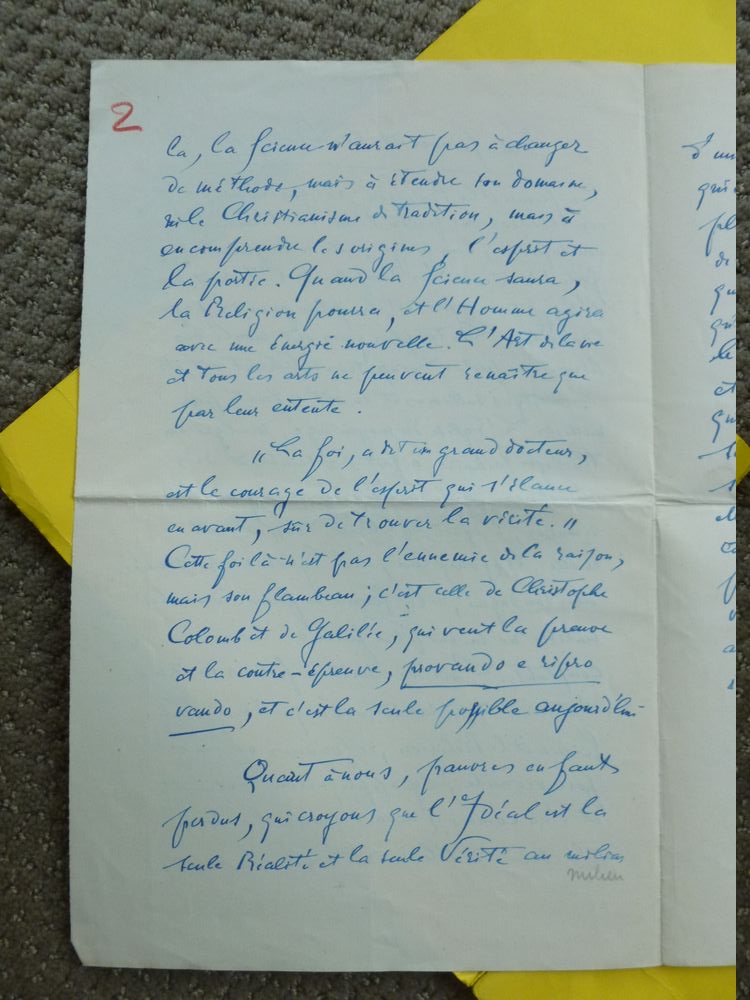 2
la, la Science n'aurait pas à changer
de méthode, mais à étendre son domaine,
ni le Christianisme de tradition, mais à
en comprendre les origines, l'esprit et
la portée. Quand la Science saura,
la Religion pourra, et l'Homme agira
avec une énergie nouvelle. L'Art de la vie
et tous les arts ne peuvent renaître que
par leur entente.
"La foi, a dit un grand docteur,
est le courage de l'esprit qui s'élance
en avant, sûr de trouver la vérité."
Cette foi là n'est pas l'ennemie de la raison,
mais son flambeau; c'est celle de Christophe
Colomb et de Galilée, qui veut la preuve
et la contre-épreuve, provando e ripro
vando, et c'est la seule possible aujourd'hui
Quant à nous, pauvres enfants
perdus, qui croyons que l'Idéal est la
seule Réalité et la seule Vérité au milieu
milieu
d'un
pl
de
le
et